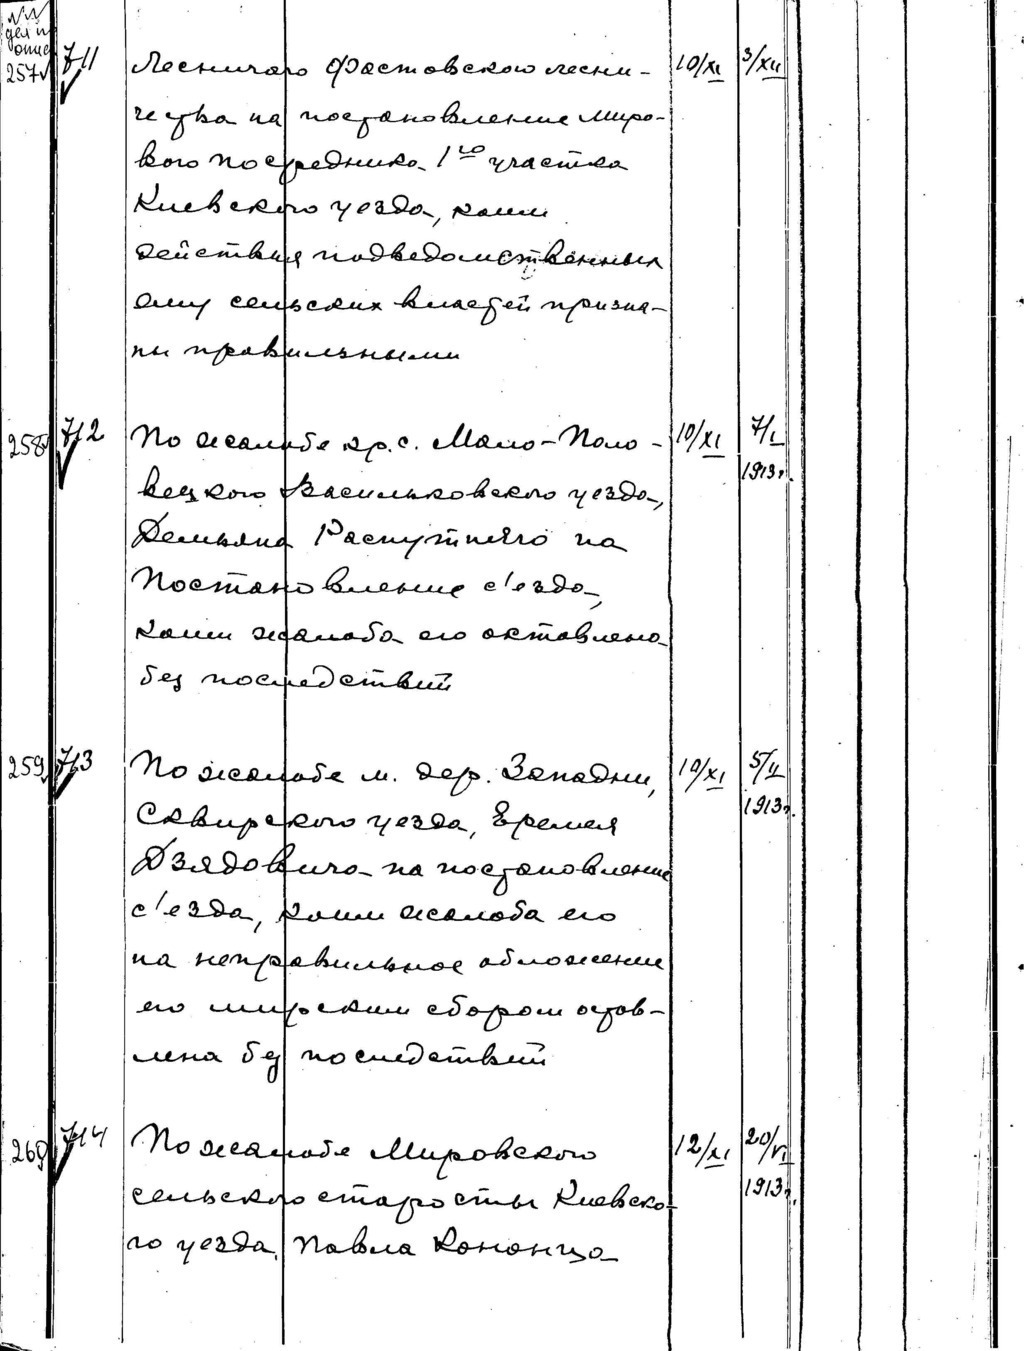 №№
дел по
описи
257 711 Лесничаго Фастовского лесни- 10/XI 3/XII
чества на постановление миро-
вого посредника 1го участка
Киевского уезда, коим
действия подведомственных
ему сельских властей призна-
ны правильными
258 712 По жалобе кр. с. Мало-Поло- 10/XI 7/I
вецкого Васильковского уезда, 1913г.
Демьяна Распутнего на
постановление с'езда,
коим жалоба его оставлена
без последствий
259 713 По жалобе м. дер. Западни, 10/XI 5/II
Сквирского уезда, Еремея 1913г.
Дзядовича на постановление
с'езда, коим жалоба его
на неправильное обложение
его мирским сбором остав-
лена без последствий
260 714 По жалобе Мировского 12/XI 20/VI
сельского старосты Киевско- 1913г.
го уезда, Павла Кононца